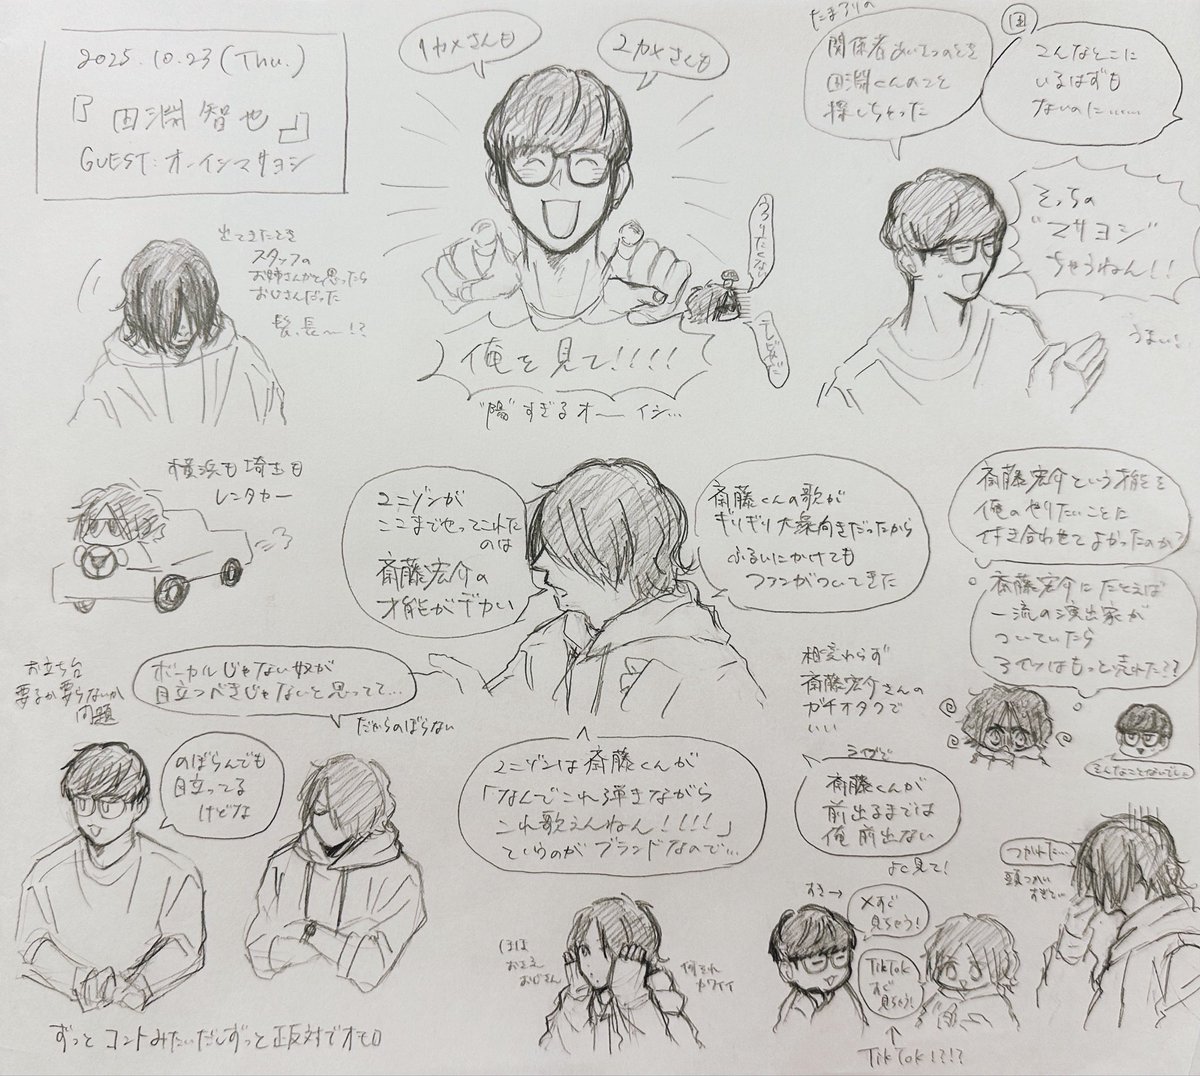 2025.10.23(Thu.)
『田淵智也』
GUEST:オーイシマサヨシ
1カメさんも
2カメさんも
俺を見て!!!!
"陽"すぎるオーイシ…
うつりたくない
テレビなのに
たまアリの
関係者あいさつのとき
田淵くんのこと
探しちゃった
田
こんなとこに
いるはずも
ないのに……
そっちの
"マサヨシ"
ちゃうねん!!
うまい!
出てきたとき
スタッフの
お姉さんかと思ったら
おじさんだった
髪、長〜!?
横浜も埼玉も
レンタカー
ユニゾンが
ここまでやってこれた
のは
斎藤宏介の
才能がデカい
斎藤くんの歌が
ギリギリ大衆向きだったから
ふるいにかけても
ファンがついてきた
斎藤宏介という才能を
俺のやりたいことに
付き合わせてよかったのか?
斎藤宏介にたとえば
一流の演出家が
ついていたら
アイツはもっと売れた??
そんなことないでしょ
お立ち台
要るか要らないか
問題
ボーカルじゃない奴が
目立つべきじゃないと思ってて…
だからのぼらない
のぼらんでも
目立ってる
けどな
相変わらず
斎藤宏介さんの
ガチオタクで
いい
ユニゾンは斎藤くんが
「なんでこれ弾きながら
これ歌えんねん!!!!」
ていうのがブランドなので…
ライブで
斎藤くんが
前出るまでは
俺前出ない
よく見て!
つかれた…
頭つかい
すぎてい
ほぼ
おさえ
おじさん
何それ
カワイイ
すき→
Xすぐ
見ちゃう!
TikTok
すぐ
見ちゃう!
TikTok!?!?
ずっとコントみたいだしずっと正反対でオモロ